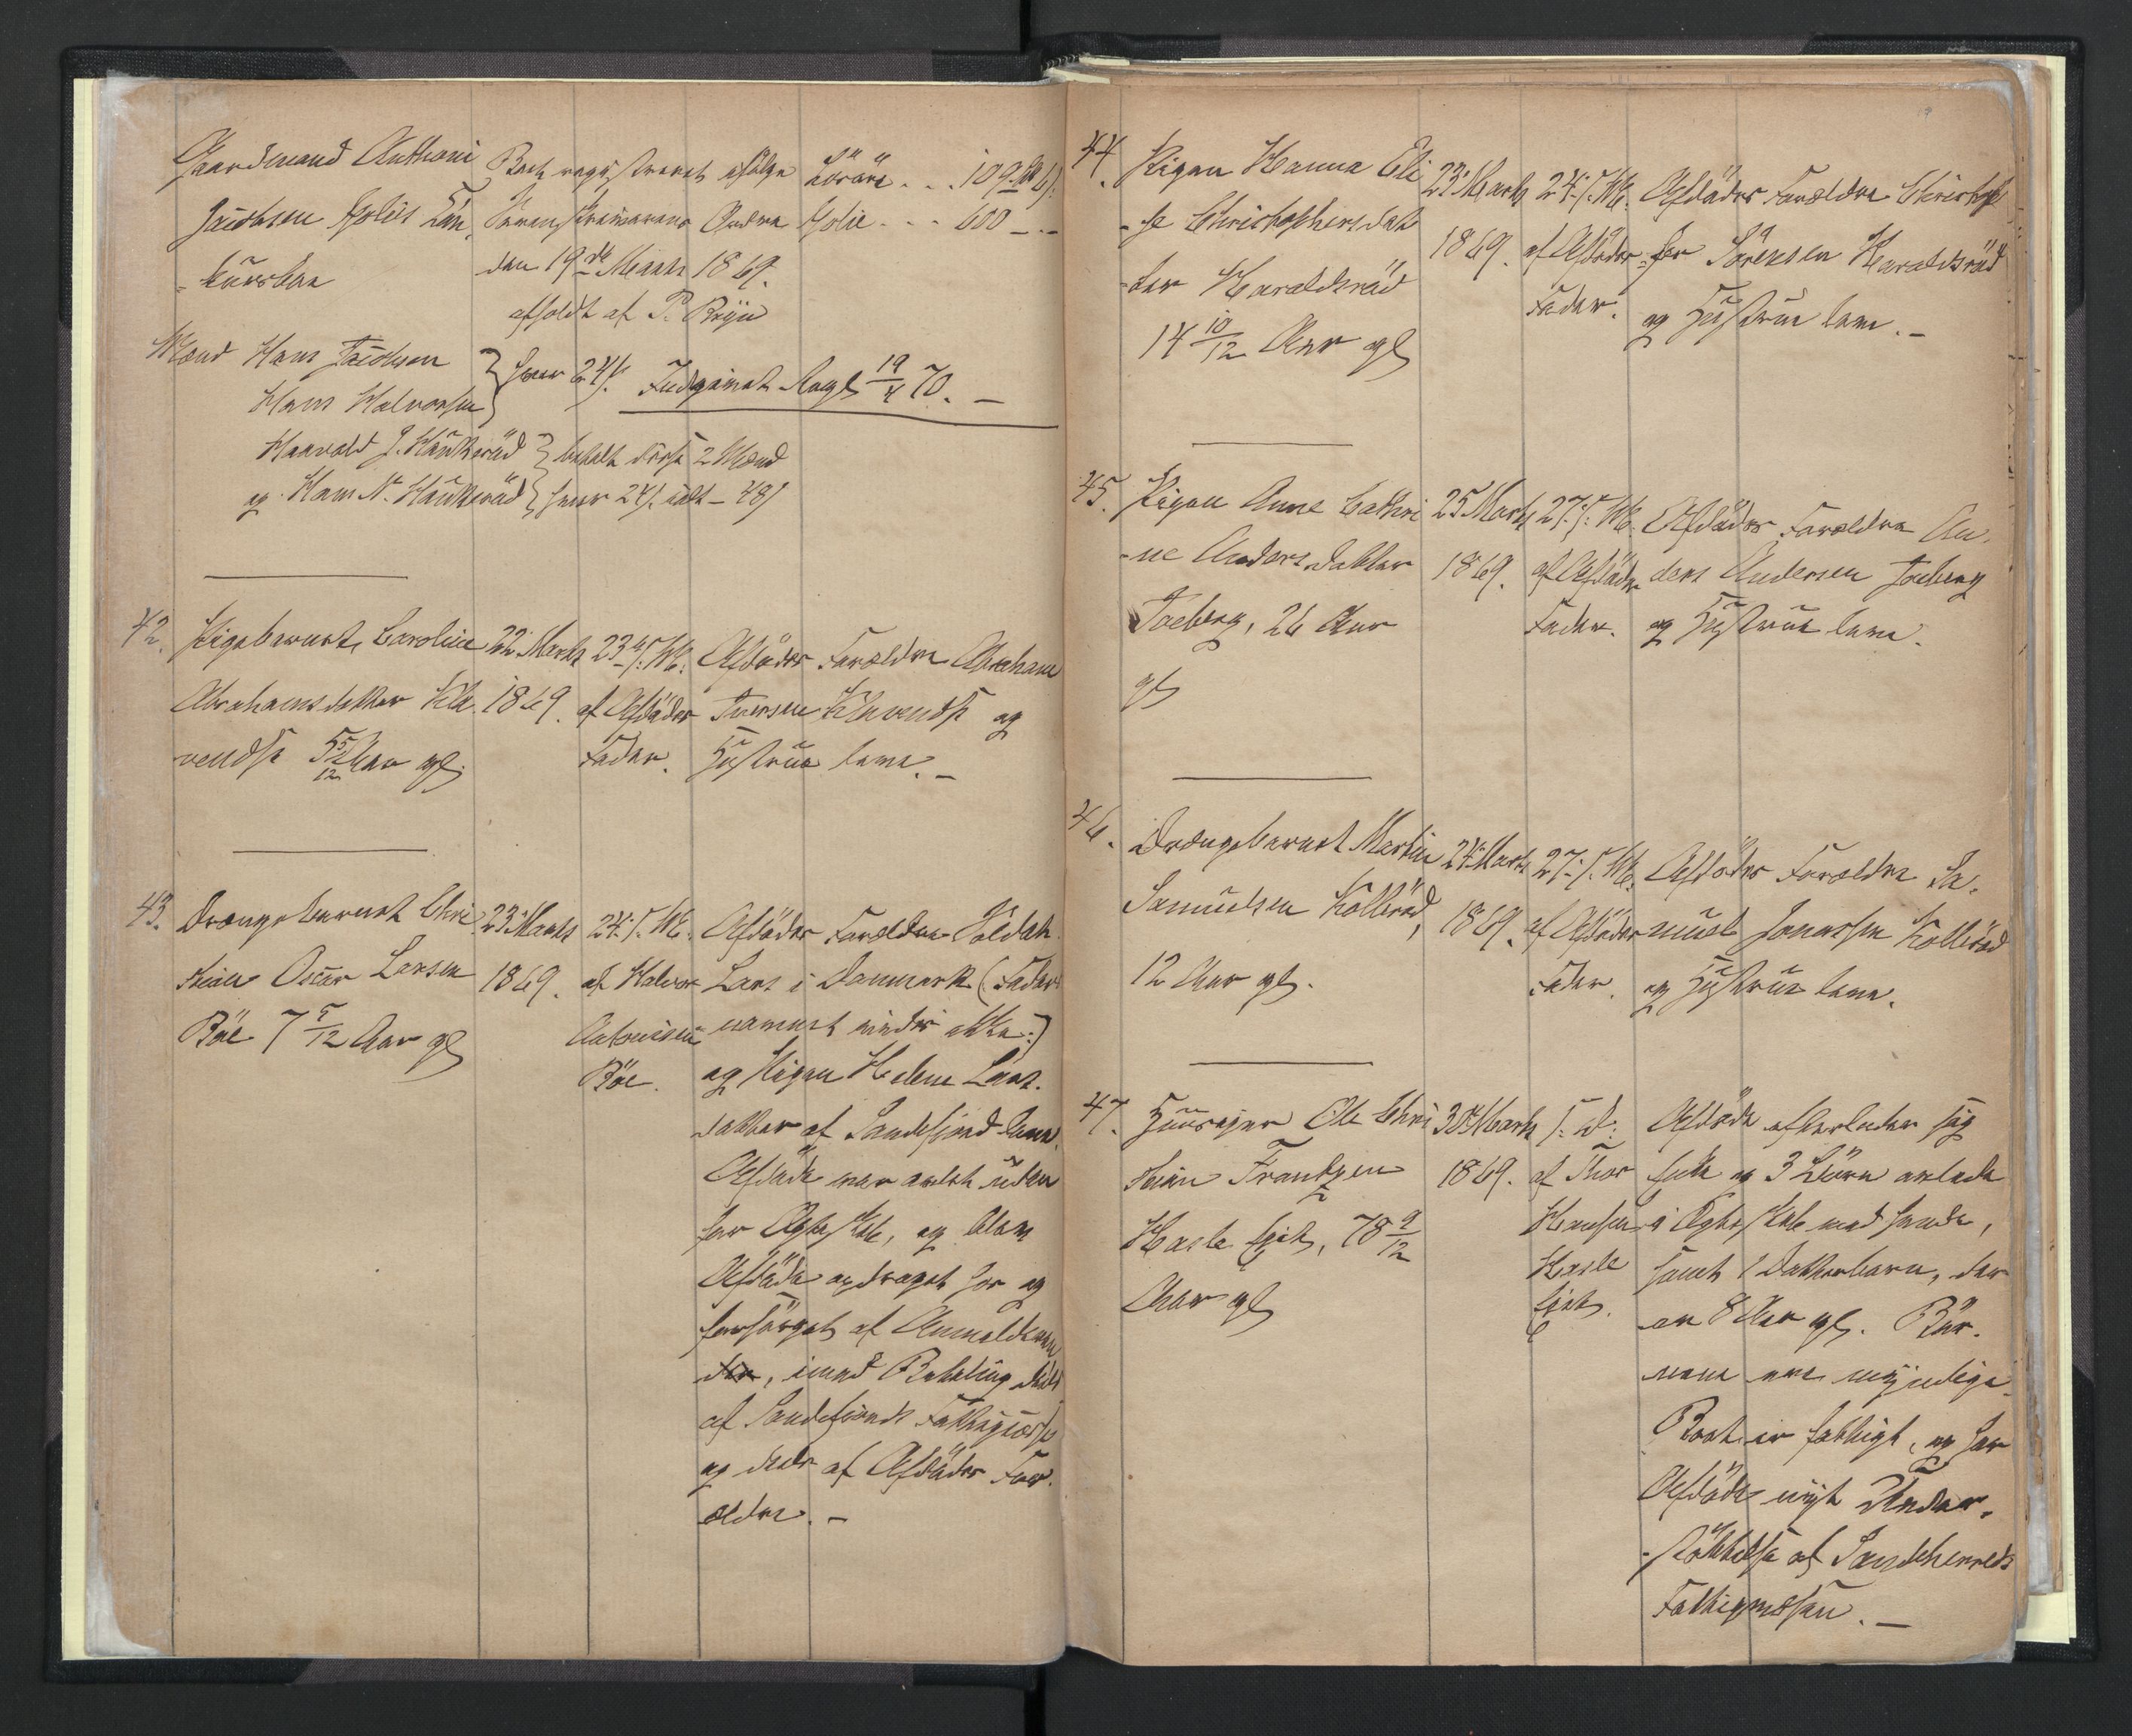 Gaardmand Anthoni
Jacobsen Holis Lan,
Boet registreret ifölge
den 19de Marts 1869.
afholdt af P. Bryn
Lösöre . . . 109
Holis - - - 600 - -
Mænd Hans Jacobsen
Hans Halvorsen
hver 24 s.
Indgivet Angl 19/4 70. -
Haavald J. Haukeröd
og Hans N. Haukeröd
betalt disse 2 Mænd
hver 24 s. ialt - 48 s
42. Pigebarnet, Caroline
Abrahamsdatter Kla-
vendse 5 5/12 Aar gl.
22 Marts
1869.
23 s. M.
af Afdödes
Fader.
Afdödes Forældre Abraham
Iversen Klavendse og
Hustrue leve. -
43. Drengebarnet Chri
stian Oscar Larsen
Böe 7 5/12 Aar gl
23 Marts
1869.
24 s. M.
af Halvor
Antonisen
Böe.
Afdödes Forældre Soldat
Lars i Danmark (Faders
navnet vides ikke:)
og Pigen Helene Lars-
datter af Sandefjord leve.
Afdöde var avlet uden
for Ægteskab, og blev
Afdöde opdraget hos og
forsörget af Anmelderen
, imod Betaling deels
af Sandefjords Fattigkasse
og deels af Afdödes For-
ældre. -
44. Pigen Hanna Eli
-se Christophersdat
-ter Haraldsröd
14 10/12 Aar gl
23 Marts
1869.
24 s. M.
af Afdödes
Fader.
Afdödes Forældre Christoph
-fer Sörensen Haraldsröd
og Hustrue leve. -
45. Pigen Anne Cathri
-ne Andersdatter
Joeberg, 26 Aar
gl
25 Marts
1869.
27 s. M.
af Afdödes
Fader.
Afdödes Forældre An-
ders Andersen Joeberg
og Hustrue leve.
46. Drengebarnet Martin
Samuelsen Kolleröd,
12 Aar gl.
24 Marts
1869.
27 s. M.
af Afdödes
Fader.
Afdödes Forældre Sa-
muel Jonassen Kolleröd
og Hustrue leve.
47. Huusejer Ole Chri
stian Frantzen
Hasle Ejet, 78 9/12
Aar gl
30 Marts
1869.
s. D.
af Thor
Hansen
Hasle
Ejet.
Afdöde efterlader sig
Enke og 3 Börn avlede
i Ægteskab med hende,
samt 1 Datterbarn, der
er 8 Aar gl. Bör-
nene ere myndige.
Boet er fattigt, og har
Afdöde nydt Under-
-stöttelse af Sandeherreds
Fattigvæsen. -